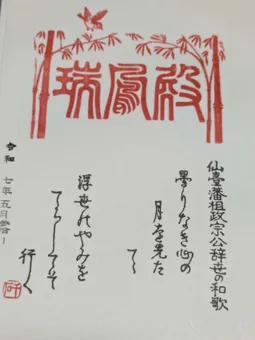 瑞鳳殿
仙臺藩祖政宗公辞世の和歌
曇りなき心の
月を先た
てゝ
浮世のやみを
てらしてそ
行く
令和
七年五月